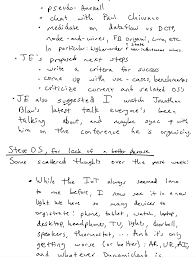 • pseudo-Anvall
• chat with Paul Chiusano
• meditate on dataflow vs DCTP,
node-and-wires, FB Origami, Luna, etc
In particular: higher-order
• JE's proposed next steps
• write a criteria for success
• come up with use-cases, benchmarks
• criticize current and related OSS
• JE also suggested I watch Jonathan
Blow's latest talk everyone's been
talking about, and maybe sync w/
him on the conference he is organizing
Steve OS, for lack of a better phrase
Some scattered thoughts over the past week:
• While the IoT always seemed lame
to me before, I now see it in a new
light we have so many devices to
orchestrate: phone, tablet, watch, laptop,
desktop, headphones, TV, lights, doorbell,
speakers, thermostat, ... And it's only
getting worse (or better) - AR, VR, AI,
and whatever Dynamicland is